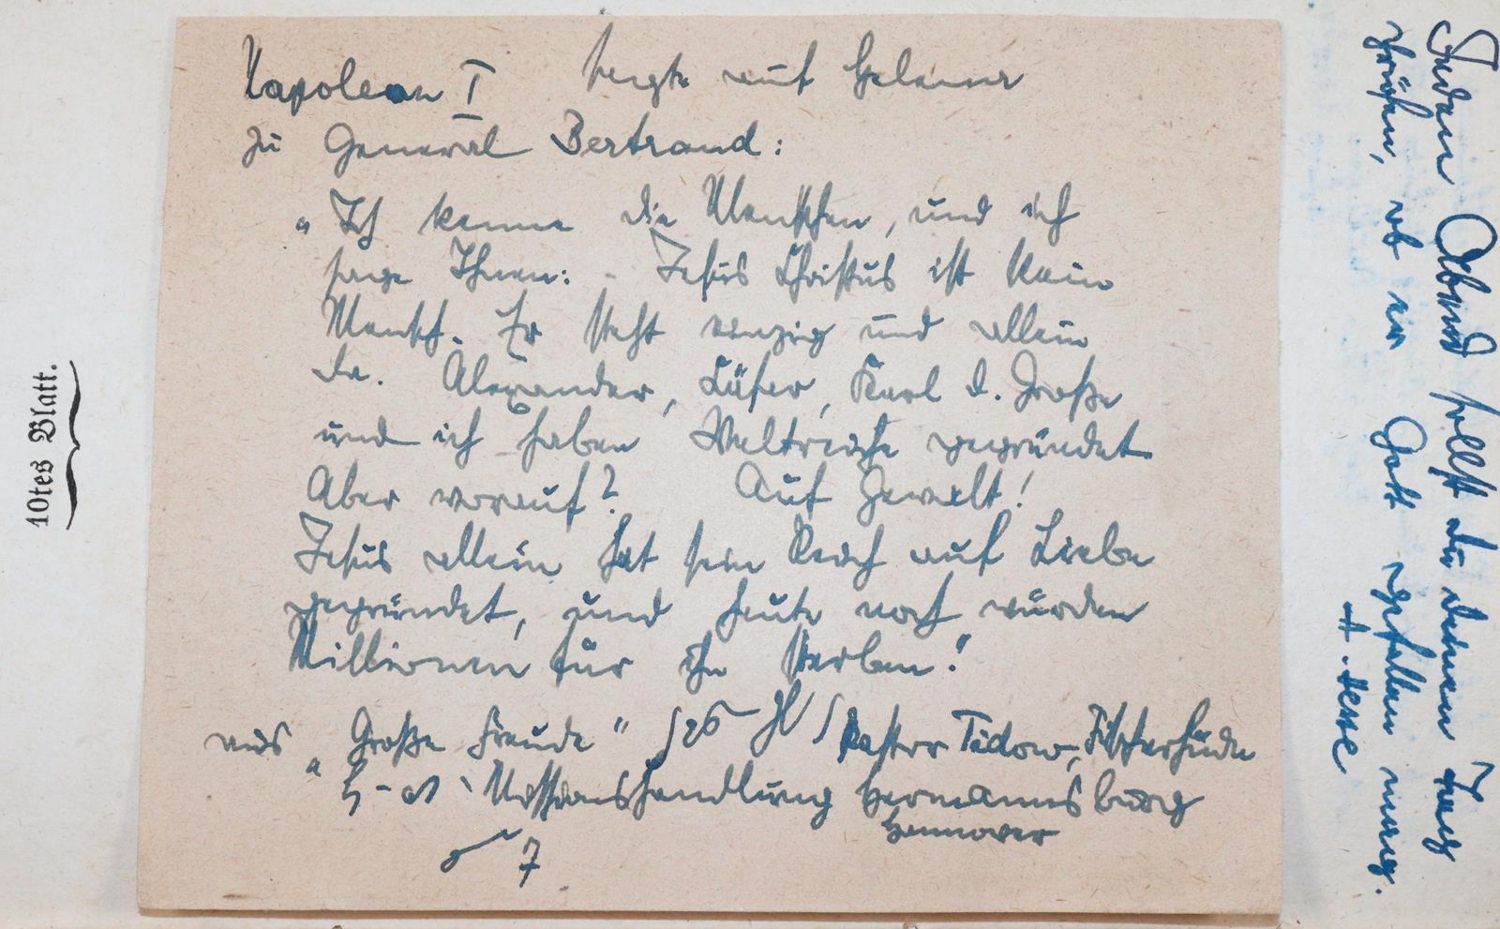 Napoleon I sagte auf Helena
zu General Bertrand:
„Ich kenne die Menschen, und ich
sage Ihnen: Jesus Christus ist kein
Mensch. Er steht einzig und allein
da. Alexander, Cäsar, Karl d. Große
und ich haben Weltreiche gegründet.
Aber worauf? Auf Gewalt!
Jesus allein hat sein Reich auf Liebe
gegründet, und heute noch würden
Millionen für ihn sterben!"
aus „Große Freude" Pastor Tidow, Fischerhude
Missionshandlung Hermannsburg
Hannover
7
10tes Blatt.
Jeden Abend sollst du deinen Tag
prüfen, ob er Gott gefallen mag.